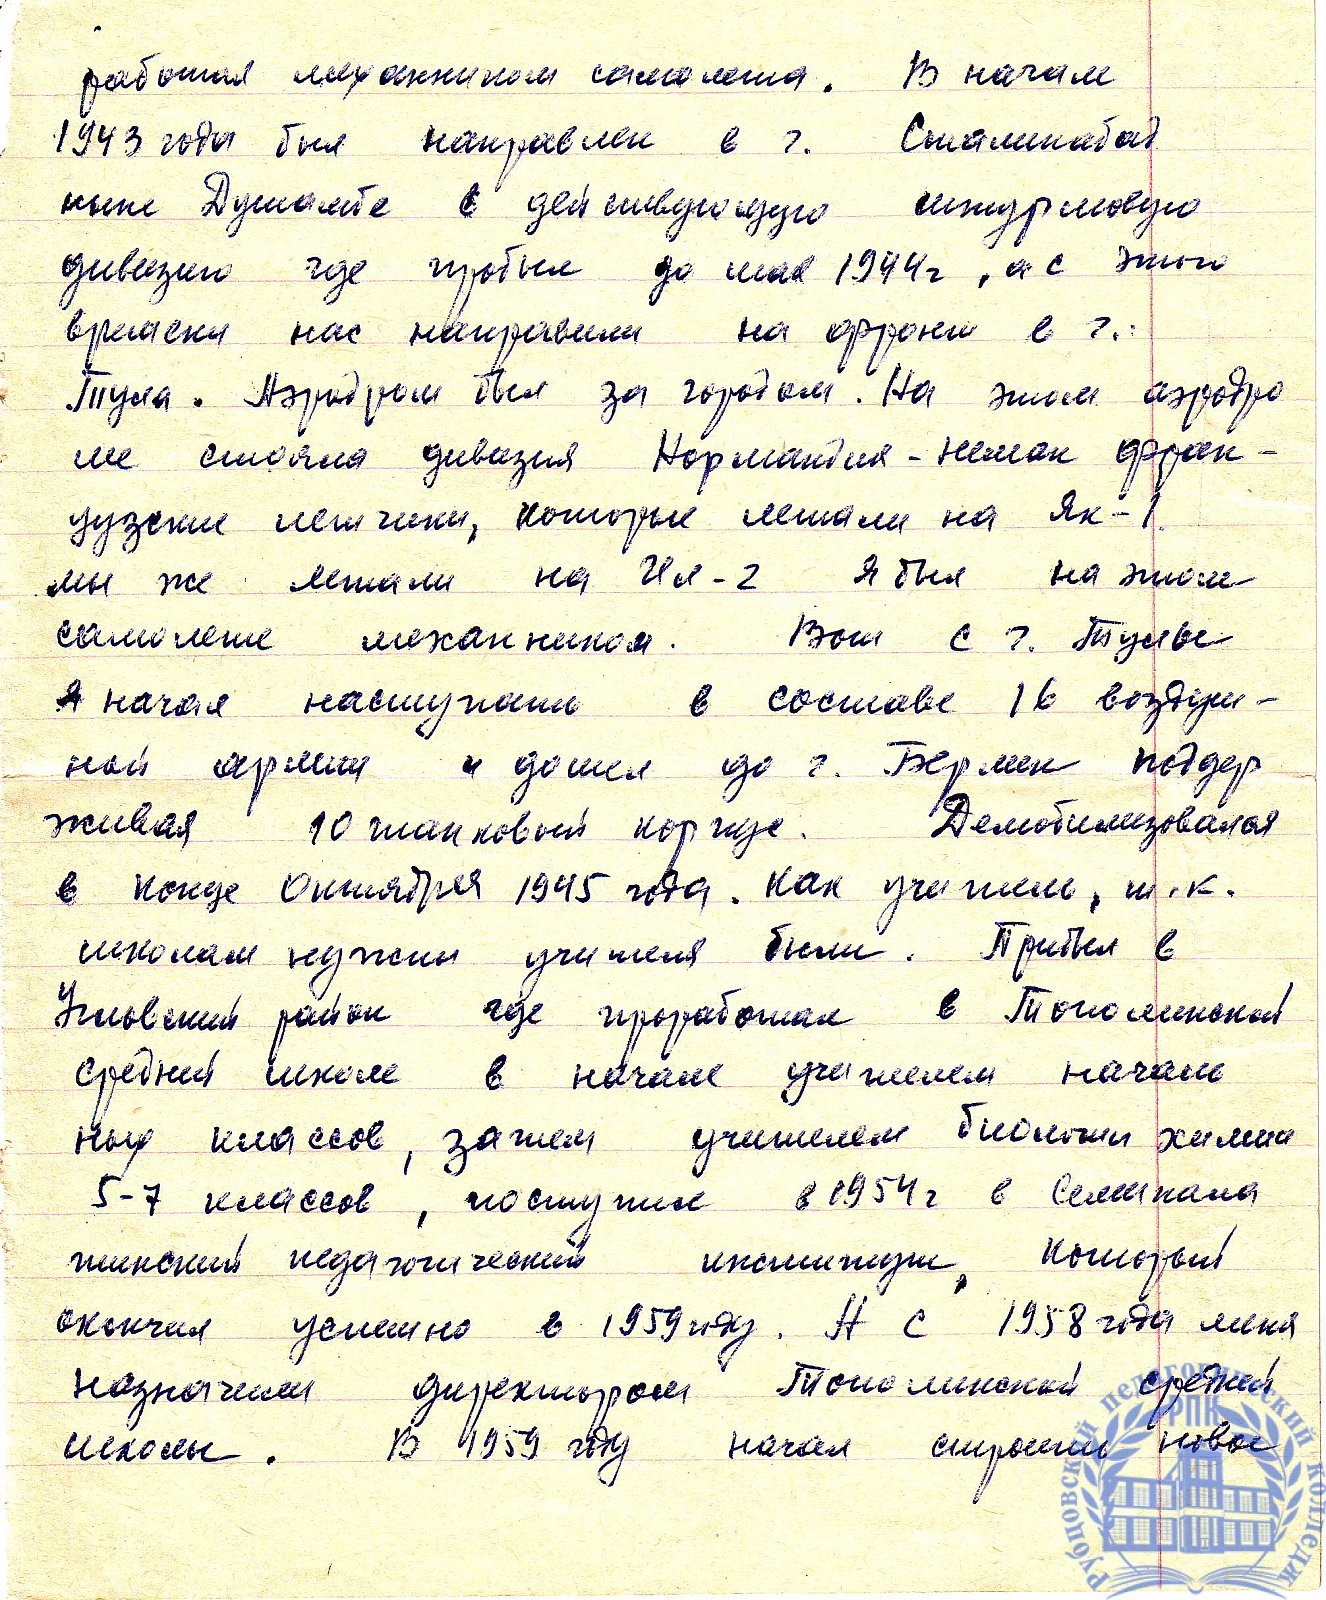 работал механиком самолета. В начале
1943 года был направлен в г. Сталинабад
ныне Душамбе в действующую штурмовую
дивизию где пробыл до мая 1944г, а с этого
времени нас направили на фронт в г.:
Тула. Аэродром был за городом. На этом аэродро
ме стояла дивизия Нормандия-неман фран-
цузские летчики, которые летали на Як-1.
мы же летали на Ил-2 Я был на этом
самолете механиком. Вот с г. Тулы
я начал наступать в составе 16 воздуш-
ной армии и дошел до г. Берлин поддер
живая 10 танковый корпус. Демобилизовался
в конце Октября 1945 года. Как учитель, т.к.
школам нужны учителя были. Прибыл в
Угловский район где проработал в Тополинской
средней школе в начале учителем началь
ных классов, затем учителем биологии химии
5-7 классов, поступил в 1954г в Семипала
тинский педагогический институт, который
окончил успешно в 1959 году. А с 1958 года меня
назначили директором Тополинской средней
школы. В 1959 году начал строить новое
Рубцовский педагогический колледж
РПК